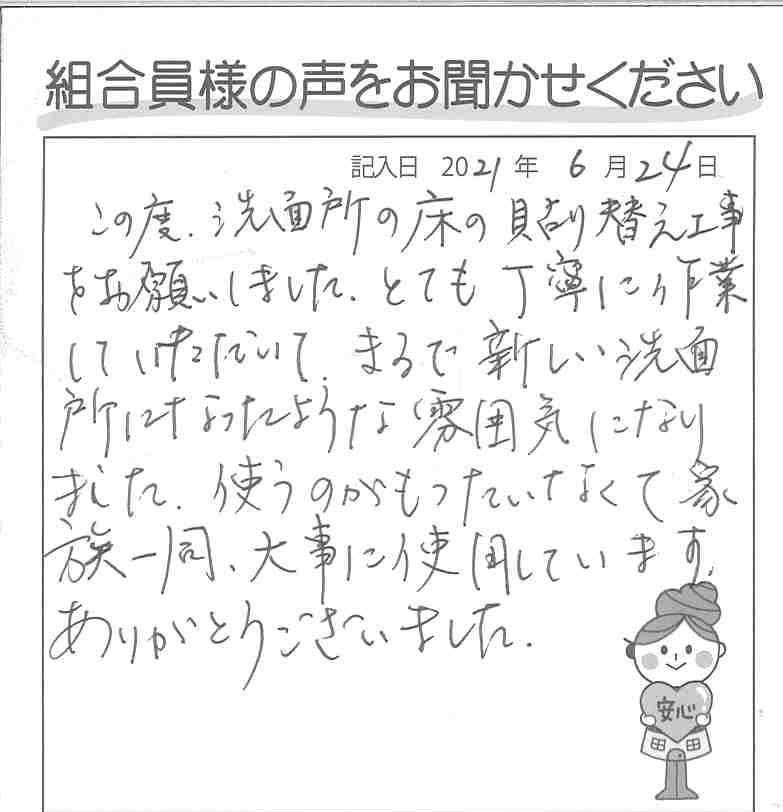 組合員様の声をお聞かせください
記入日 2021年 6月24日
この度、洗面所の床の貼り替え工事
をお願いしました。とても丁寧に作業
していただいて、まるで新しい洗面
所になったような雰囲気になり
ました。使うのがもったいなくて家
族一同、大事に使用しています。
ありがとうございました。
安心